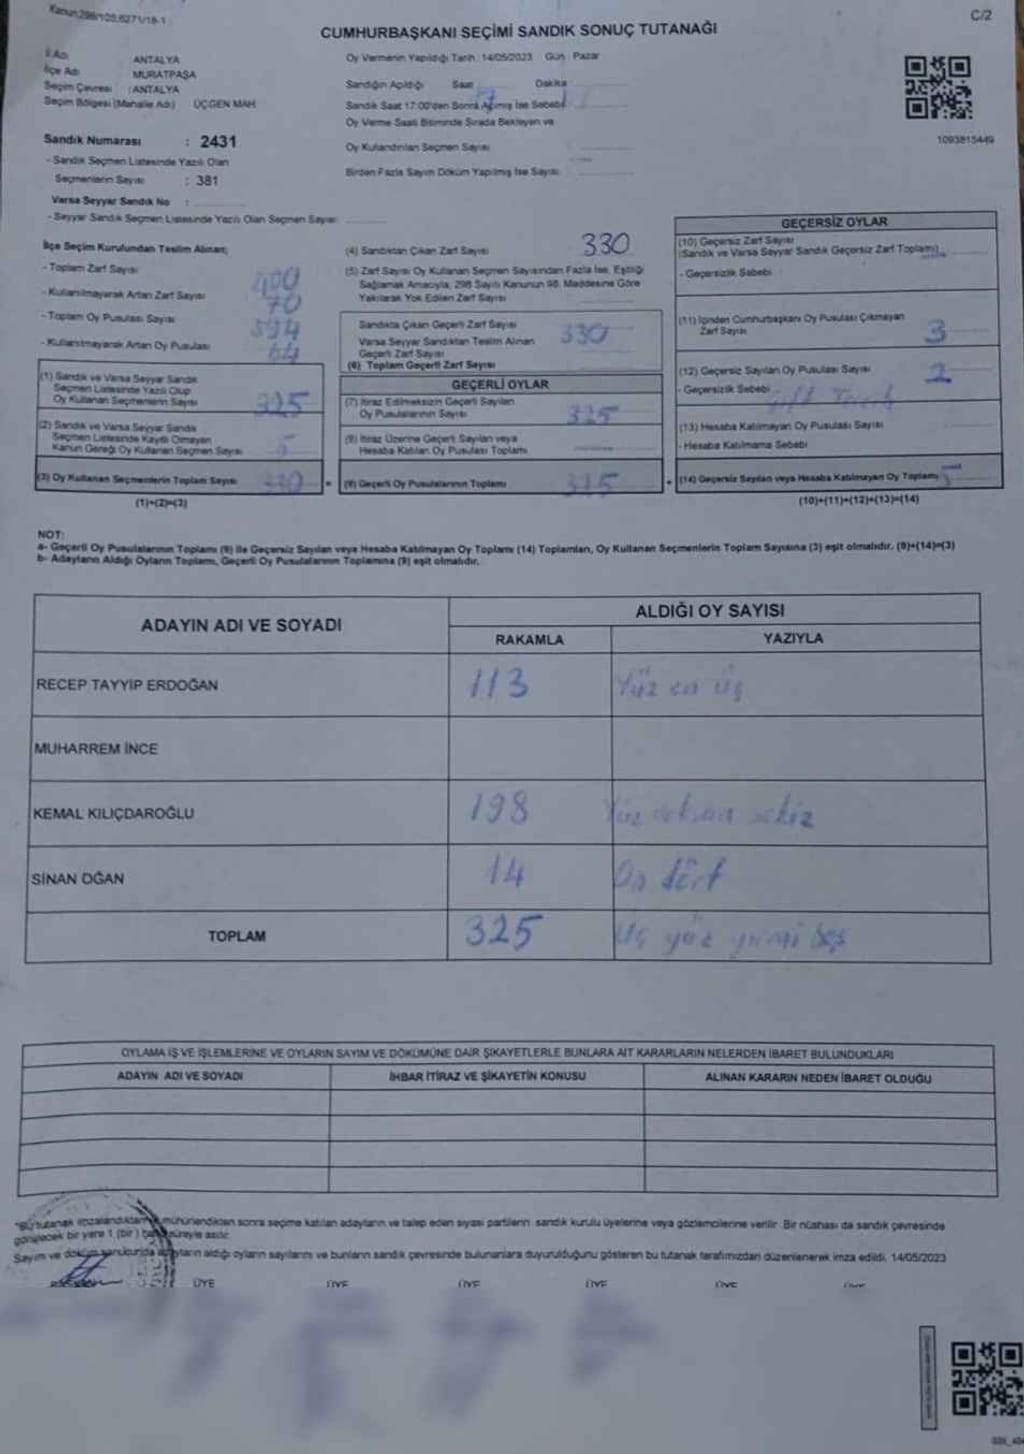 Kanun,298/105,6271/18-1
C/2
CUMHURBAŞKANI SEÇİMİ SANDIK SONUÇ TUTANAĞI
İl Adı ANTALYA
İlçe Adı MURATPAŞA
Seçim Çevresi : ANTALYA
Seçim Bölgesi (Mahalle Adı) ÜÇGEN MAH
Oy Vermenin Yapıldığı Tarih : 14/05/2023 Gün : Pazar
Sandığın Açıldığı Saat Dakika
Sandık Saat 17:00'den Sonra Açılmış İse Sebebi
Oy Verme Saati Bitiminde Sırada Bekleyen ve
Oy Kullandırılan Seçmen Sayısı
Birden Fazla Sayım Döküm Yapılmış İse Sayısı
1093815449
Sandık Numarası : 2431
- Sandık Seçmen Listesinde Yazılı Olan
Seçmenlerin Sayısı : 381
Varsa Seyyar Sandık No :
- Seyyar Sandık Seçmen Listesinde Yazılı Olan Seçmen Sayısı
İlçe Seçim Kurulundan Teslim Alınan;
- Toplam Zarf Sayısı 400
- Kullanılmayarak Artan Zarf Sayısı 70
- Toplam Oy Pusulası Sayısı 394
- Kullanılmayarak Artan Oy Pusulası 64
(1) Sandık ve Varsa Seyyar Sandık
Seçmen Listesinde Yazılı Olup
Oy Kullanan Seçmenlerin Sayısı 325
(2) Sandık ve Varsa Seyyar Sandık
Seçmen Listesinde Kayıtlı Olmayan
Kanun Gereği Oy Kullanan Seçmen Sayısı 5
(3) Oy Kullanan Seçmenlerin Toplam Sayısı 330
(1)+(2)=(3)
(4) Sandıktan Çıkan Zarf Sayısı 330
(5) Zarf Sayısı Oy Kullanan Seçmen Sayısından Fazla İse, Eşitliği
Sağlamak Amacıyla, 298 Sayılı Kanunun 98. Maddesine Göre
Yakılarak Yok Edilen Zarf Sayısı
Sandıkta Çıkan Geçerli Zarf Sayısı 330
Varsa Seyyar Sandıktan Teslim Alınan
Geçerli Zarf Sayısı
(6) Toplam Geçerli Zarf Sayısı
GEÇERLİ OYLAR
(7) İtiraz Edilmeksizin Geçerli Sayılan
Oy Pusulalarının Sayısı 325
(8) İtiraz Üzerine Geçerli Sayılan veya
Hesaba Katılan Oy Pusulası Toplamı
(9) Geçerli Oy Pusulalarının Toplamı 325
GEÇERSİZ OYLAR
(10) Geçersiz Zarf Sayısı
(Sandık ve Varsa Seyyar Sandık Geçersiz Zarf Toplamı)
- Geçersizlik Sebebi
(11) İçinden Cumhurbaşkanı Oy Pusulası Çıkmayan
Zarf Sayısı 3
(12) Geçersiz Sayılan Oy Pusulası Sayısı 2
- Geçersizlik Sebebi
(13) Hesaba Katılmayan Oy Pusulası Sayısı
- Hesaba Katılmama Sebebi
(14) Geçersiz Sayılan veya Hesaba Katılmayan Oy Toplamı 5
(10)+(11)+(12)+(13)=(14)
NOT:
a- Geçerli Oy Pusulalarının Toplamı (9) ile Geçersiz Sayılan veya Hesaba Katılmayan Oy Toplamı (14) Toplamları, Oy Kullanan Seçmenlerin Toplam Sayısına (3) eşit olmalıdır. (9)+(14)=(3)
b- Adayların Aldığı Oyların Toplamı, Geçerli Oy Pusulalarının Toplamına (9) eşit olmalıdır.
ADAYIN ADI VE SOYADI
ALDIĞI OY SAYISI
RAKAMLA YAZIYLA
RECEP TAYYİP ERDOĞAN 113 Yüz on üç
MUHARREM İNCE
KEMAL KILIÇDAROĞLU 198 Yüz doksan sekiz
SİNAN OĞAN 14 On dört
TOPLAM 325 Üç yüz yirmi beş
OYLAMA İŞ VE İŞLEMLERİNE VE OYLARIN SAYIM VE DÖKÜMÜNE DAİR ŞİKAYETLERLE BUNLARA AİT KARARLARIN NELERDEN İBARET BULUNDUKLARI
ADAYIN ADI VE SOYADI İHBAR İTİRAZ VE ŞİKAYETİN KONUSU ALINAN KARARIN NEDEN İBARET OLDUĞU
*Bu tutanak imzalandıktan mühürlendikten sonra seçime katılan adayların ve talep eden siyasi partilerin sandık kurulu üyelerine veya gözlemcilerine verilir. Bir nüshası da sandık çevresinde
görülecek bir yere 1 (bir) süreyle asılır.
Sayım ve döküm sonucunda adayların aldığı oyların sayılarını ve bunların sandık çevresinde bulunanlara duyurulduğunu gösteren bu tutanak tarafımızdan düzenlenerek imza edildi. 14/05/2023
ÜYE ÜYE ÜYE ÜYE ÜYE ÜYE